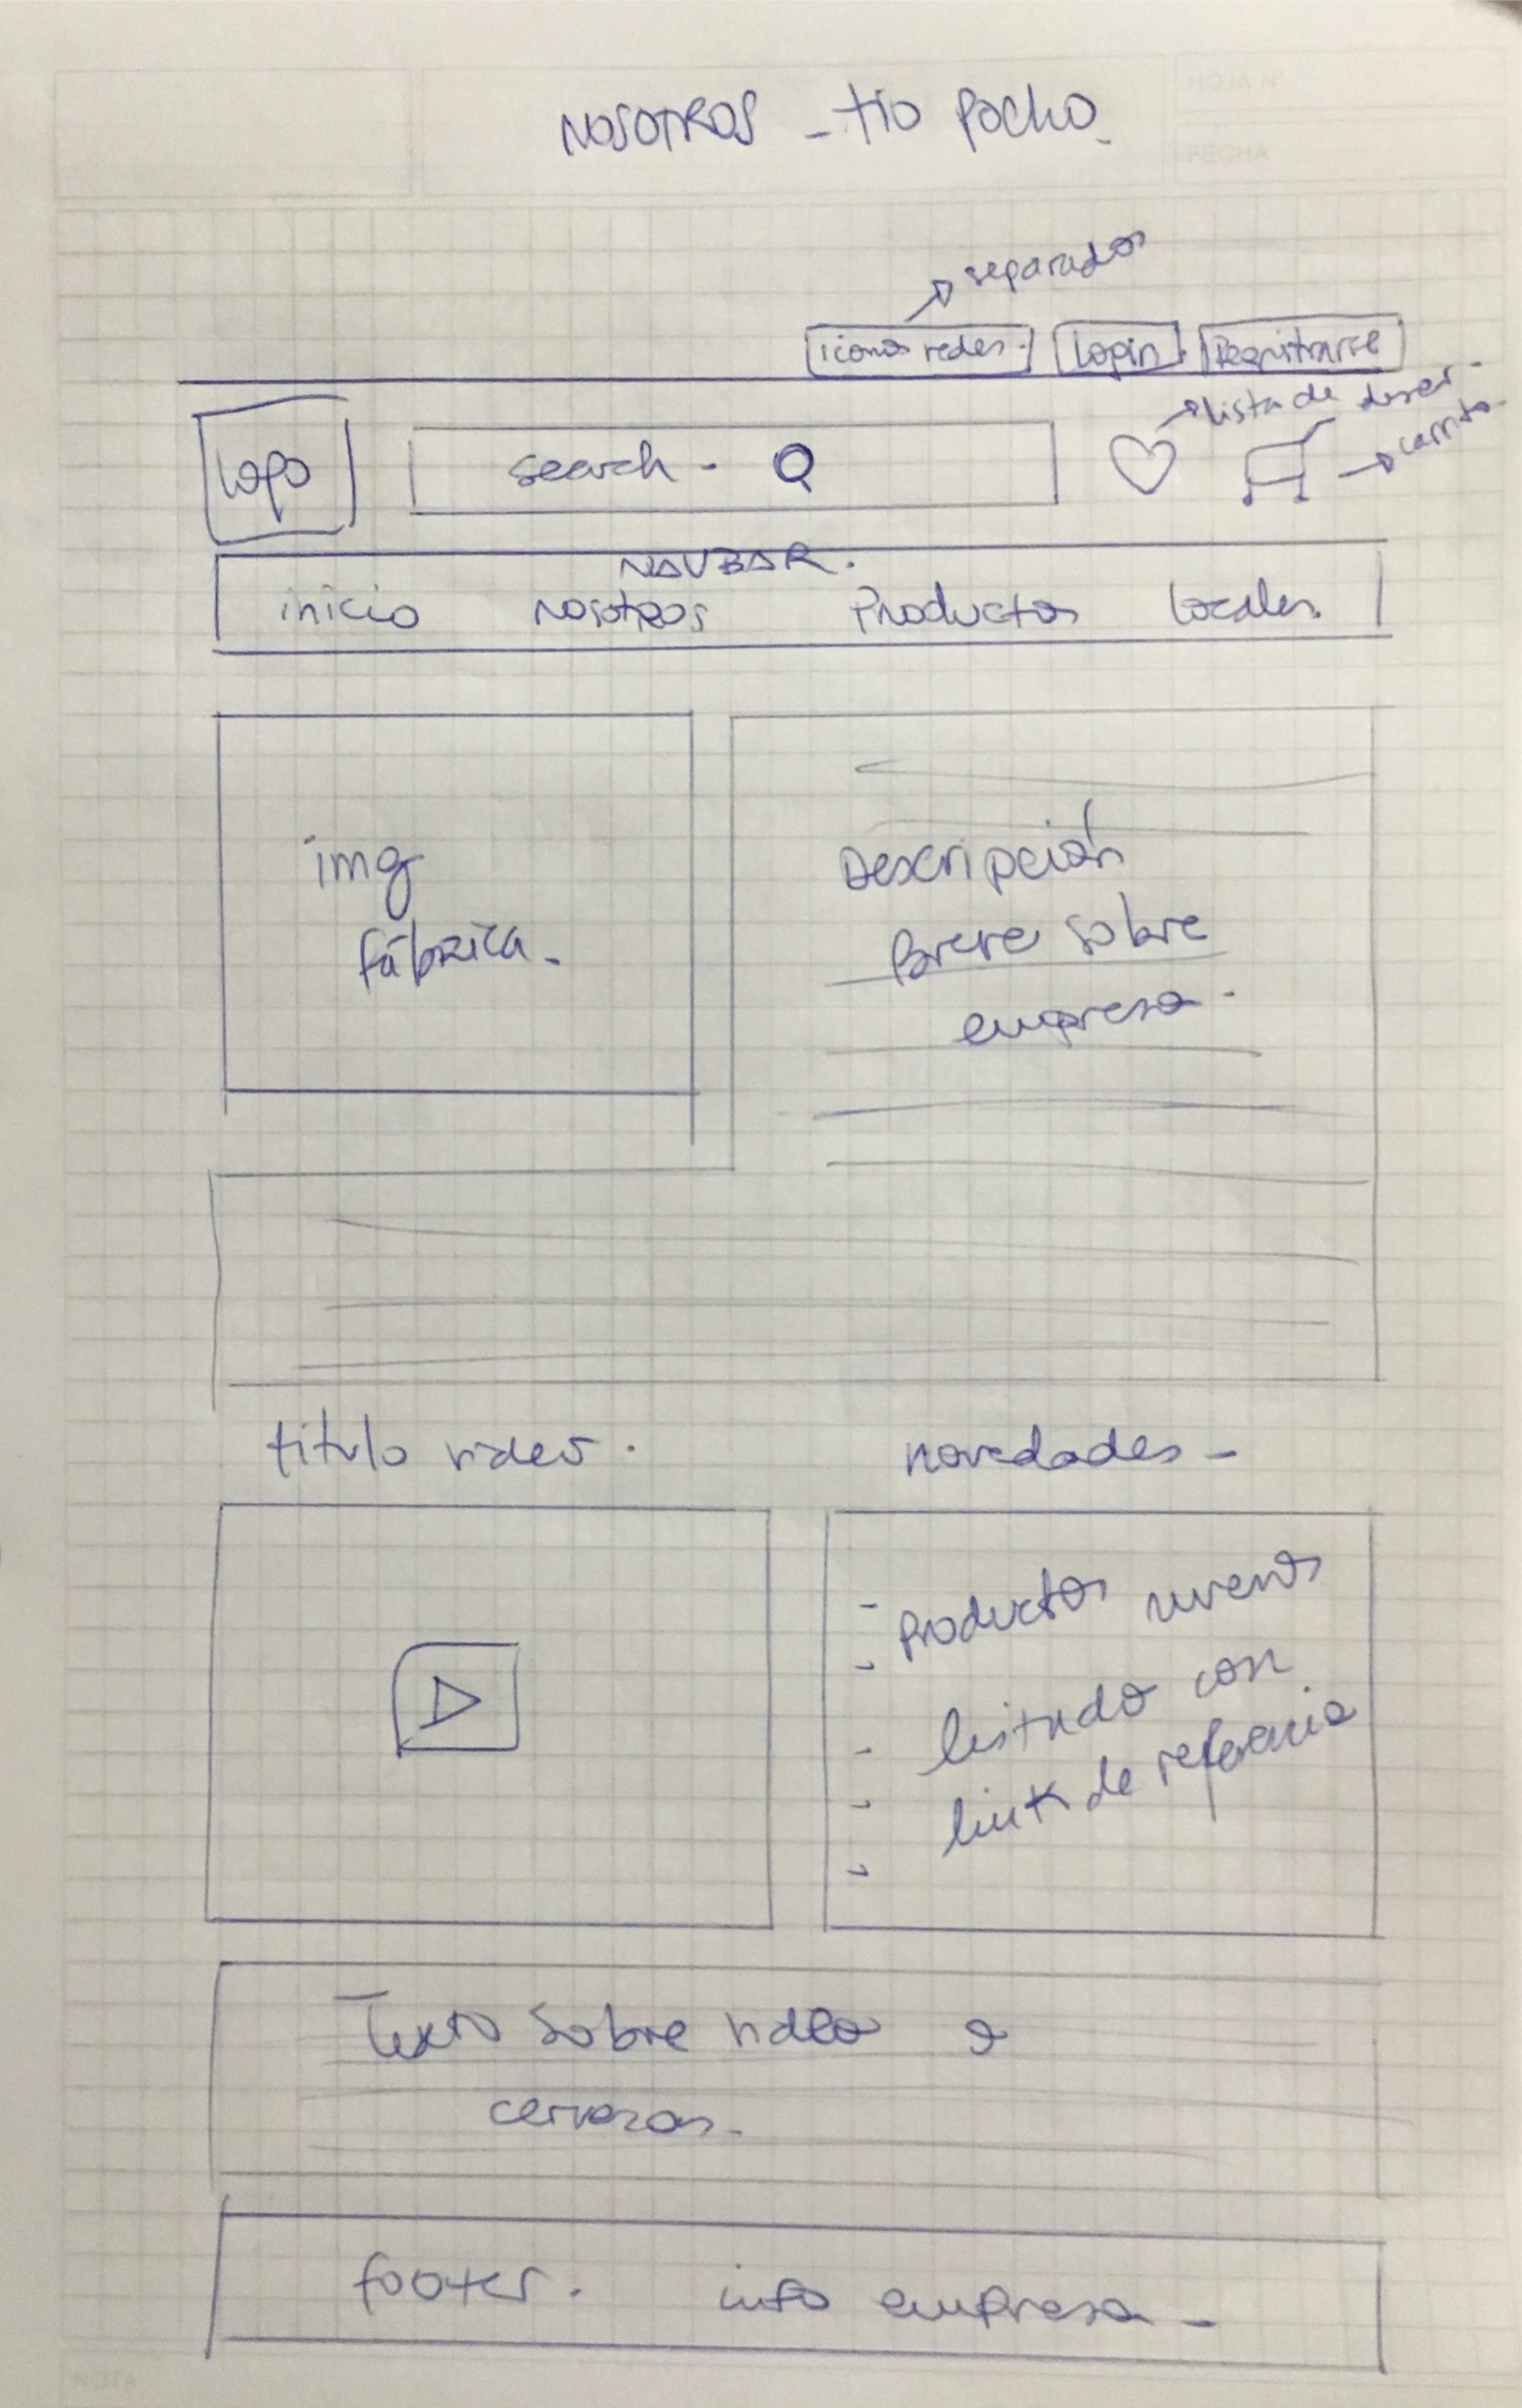 NOSOTROS - tío Pocho
separados
iconos redes. Login Registrarse
lista de deseos.
carrito
Logo search.
NAVBAR.
inicio NOSOTROS Productos Locales.
img
fábrica.
Descripción
Breve sobre
empresa.
titulo video. novedades -
- Productos nuevos
listado con
link de referencia
Texto sobre video o
cervezas.
footer. info empresa -